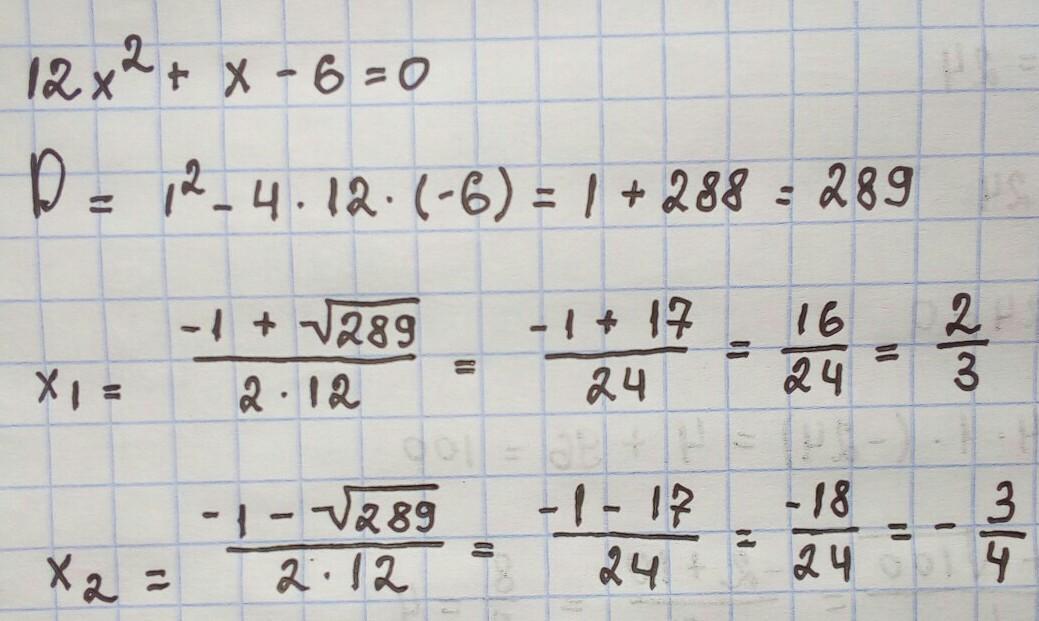 12x² + x - 6 = 0
D = 1² - 4 · 12 · (-6) = 1 + 288 = 289
x₁ = (-1 + √289)/(2 · 12) = (-1 + 17)/24 = 16/24 = 2/3
x₂ = (-1 - √289)/(2 · 12) = (-1 - 17)/24 = -18/24 = - 3/4